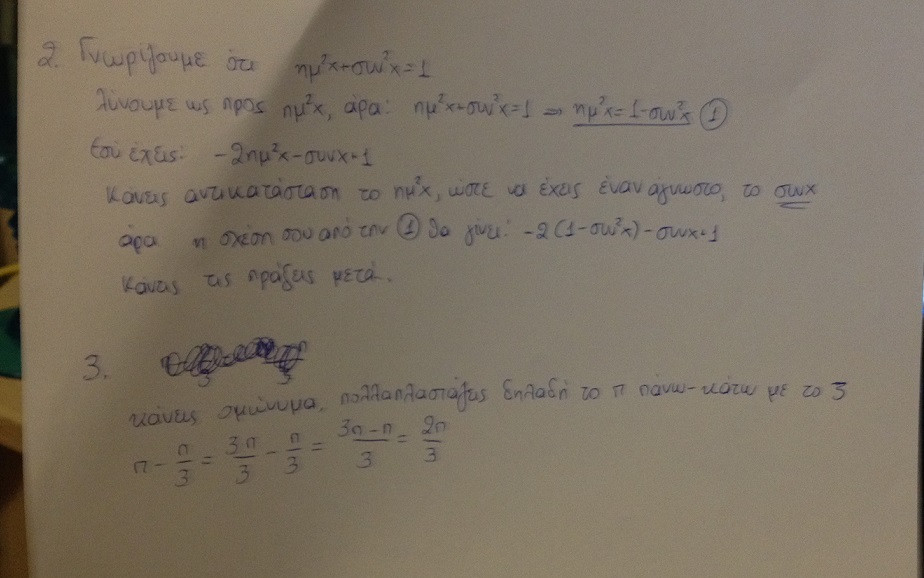 2. Γνωρίζουμε ότι ημ²x+συν²x=1
λύνουμε ως προς ημ²x, άρα: ημ²x+συν²x=1 ⇒ ημ²x=1-συν²x ①
Εσύ έχεις: -2ημ²x-συνx+1
Κάνεις αντικατάσταση το ημ²x, ώστε να έχεις έναν άγνωστο, το συνx
άρα η σχέση σου από την ① θα γίνει: -2(1-συν²x)-συνx+1
Κάνεις τις πράξεις μετά.
3.
κάνεις ομώνυμα, πολλαπλασιάζεις δηλαδή το π πάνω-κάτω με το 3
π-π/3=3π/3-π/3=3π-π/3=2π/3